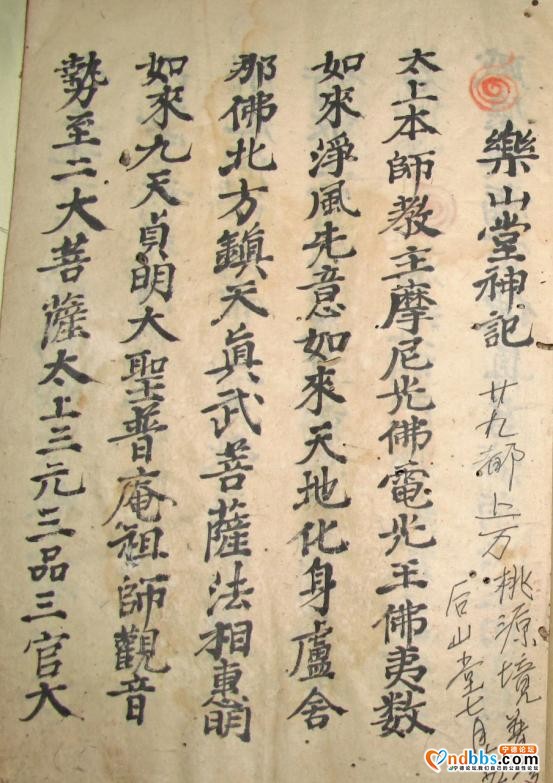 樂山堂神記
廿九都上万桃源境
后山堂七月
太上本師教主摩尼光佛電光王佛夷数
如來淨風先意如來天地化身盧舍
那佛北方鎮天眞武菩薩法相惠明
如來九天貞明大聖普庵祖師觀音
勢至二大菩薩太上三元三品三官大
宁德论坛
ndbbs.com